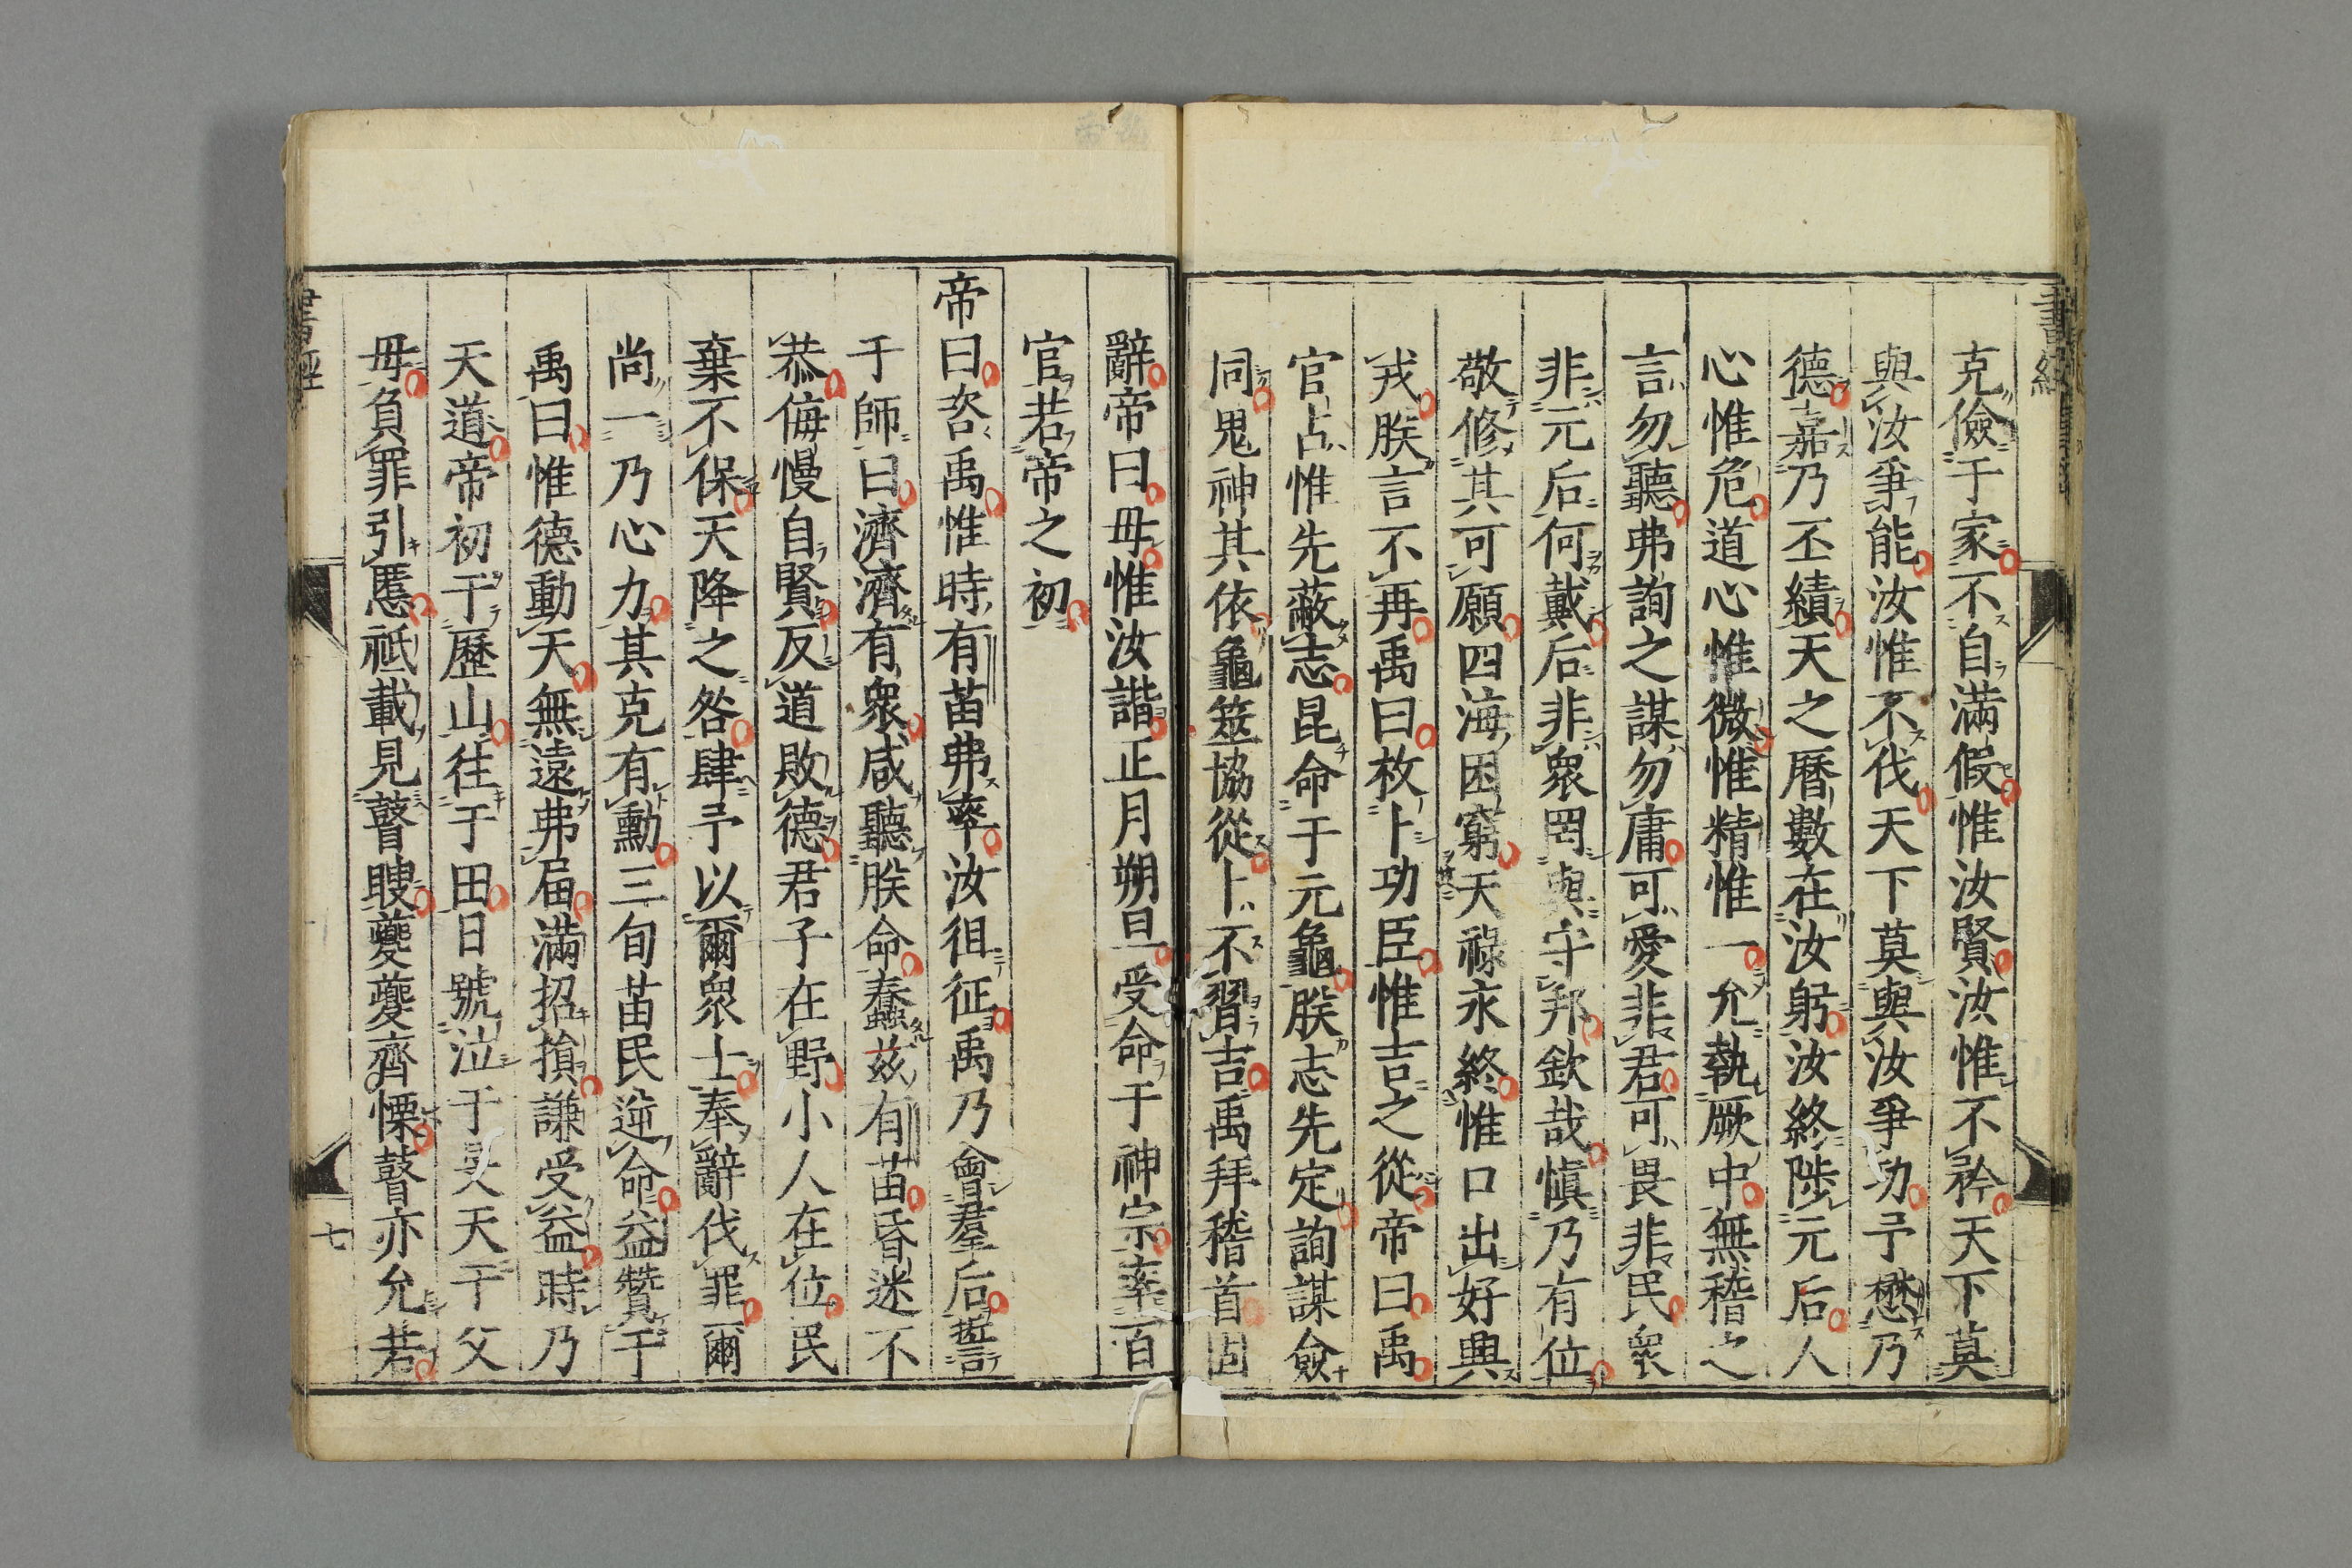 書經
克儉于家不自滿假惟汝賢汝惟不矜天下莫
與汝爭能汝惟不伐天下莫與汝爭功予懋乃
德嘉乃丕績天之曆數在汝躬汝終陟元后人
心惟危道心惟微惟精惟一允執厥中無稽之
言勿聽弗詢之謀勿庸可愛非君可畏非民衆
非元后何戴后非衆罔與守邦欽哉愼乃有位
敬修其可願四海困窮天祿永終惟口出好興
戎朕言不再禹曰枚卜功臣惟吉之從帝曰禹
官占惟先蔽志昆命于元龜朕志先定詢謀僉
同鬼神其依龜筮協從卜不習吉禹拜稽首固
辭帝曰毋惟汝諧正月朔旦受命于神宗率百
官若帝之初
帝曰咨禹惟時有苗弗率汝徂征禹乃會羣后誓
于師曰濟濟有衆咸聽朕命蠢茲有苗昏迷不
恭侮慢自賢反道敗德君子在野小人在位民
棄不保天降之咎肆予以爾衆士奉辭伐罪爾
尚一乃心力其克有勳三旬苗民逆命益贊于
禹曰惟德動天無遠弗屆滿招損謙受益時乃
天道帝初于歷山往于田日號泣于旻天于父
毋負罪引慝祗載見瞽瞍夔夔齊慄瞽亦允若
書經
七